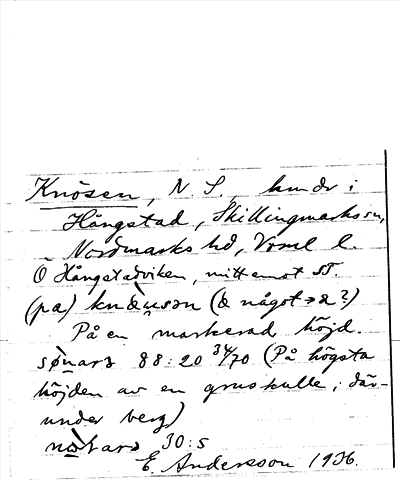 Knösen, N. S., hmdr i
Hångstad, Skillingmarks sn,
Nordmarks hd, Vrml l.
O Hångstadviken, mitt emot ST.
(pa) (něgot → a ?)
På en markerad höjd.
88:20 34/70 (På högsta
höjden av en gruskulle, där-
under berg)
30:5
E. Andersson 1936.